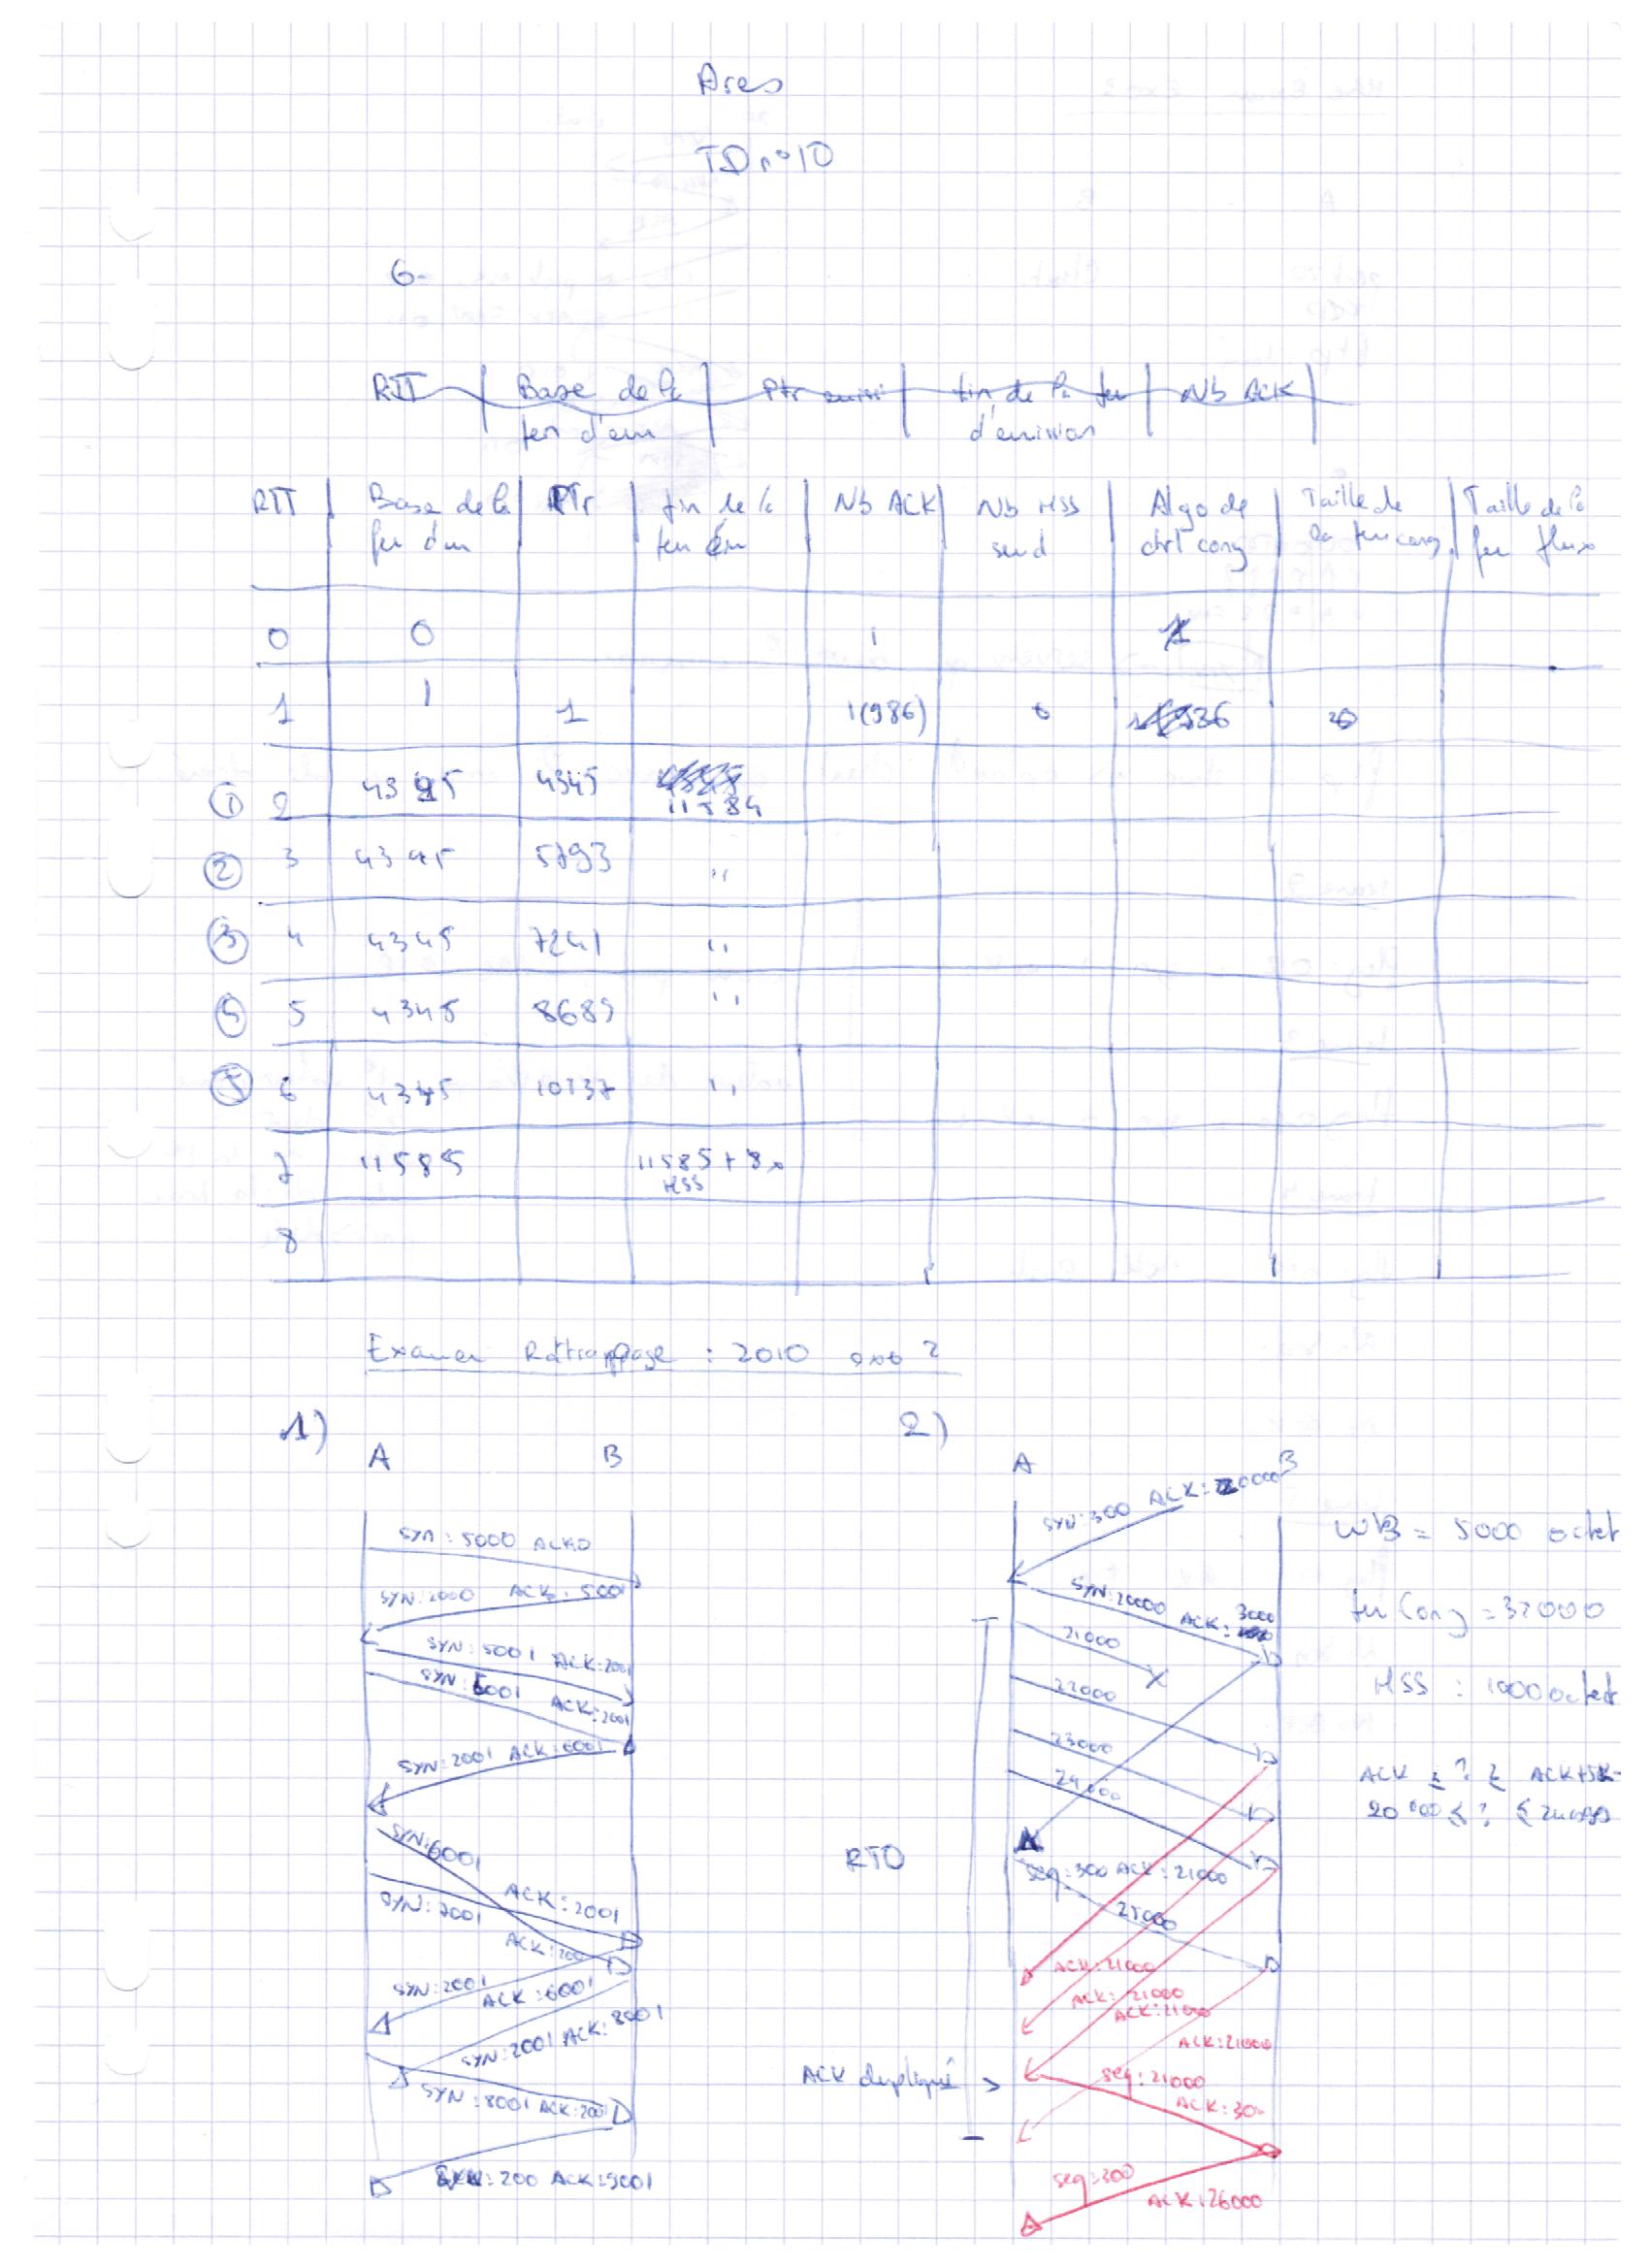 Ares
TD n°10
6-
RTT | Base de la fen d'em | Ptr suivi | fin de la fen d'emission | Nb ACK
RTT | Base de la fen d'em | PTr | fin de la fen ém | Nb ACK | Nb MSS send | Algo de ctrl cong | Taille de la fen cong | Taille de la fen flux
0 | 0 | 1
1 | 1 | 1 | 1(986)
① 2 | 4345 | 4345 | 11584
② 3 | 4345 | 5793 | "
③ 4 | 4345 | 7241 | "
5 | 4345 | 8689 | "
⑤ 6 | 4345 | 10137 | "
7 | 11585 | 11585 + 8 x MSS
8
Examen Rattrappage : 2010 exo 2
1)
A B
SYN : 5000 ACK0
SYN: 2000 ACK: 5001
SYN: 5001 ACK: 2001
SYN: 6001 ACK: 2001
SYN: 2001 ACK: 6001
SYN: 6001
ACK: 2001
SYN: 7001
ACK: 200
SYN: 2001 ACK: 6001
SYN: 2001 ACK: 8001
SYN: 8001 ACK: 2001
SYN: 200 ACK: 9001
2)
A B
SYN: 300 ACK: 20000
SYN: 20000 ACK: 3000
21000
22000
23000
24000
RTO
seq: 300 ACK: 21000
25000
ACK: 21000
ACK: 21000
ACK: 21000
ACK: 21000
ACK dupliqué >
seq: 21000
ACK: 30
seq: 300
ACK: 26000
WB = 5000 octet
fen Cong = 32000
MSS : 1000 octet
ACK ≤ ? ≤ ACK+5K-
20 000 ≤ ? ≤